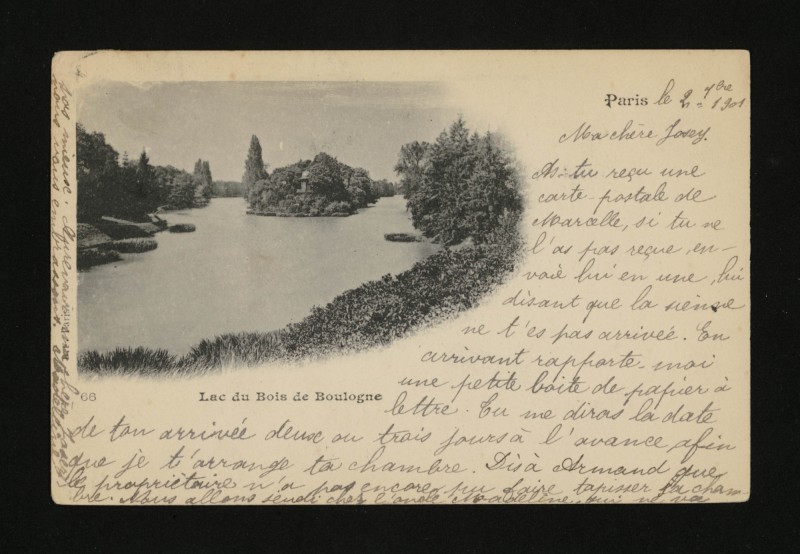 Paris le 2 7bre 1901
Ma chère Josey.
As-tu reçu une
carte-postale de
Marcelle, si tu ne
l'as pas reçue, en-
voie lui en une, lui
disant que la sienne
ne t'es pas arrivée. En
arrivant rapporte-moi
une petite boite de papier à
lettre. Tu me diras la date
68
Lac du Bois de Boulogne
de ton arrivée deux ou trois jours à l'avance, afin
que je t'arrange ta chambre. Dis à Armand que
le propriétaire n'a pas encore pu faire tapisser sa cham-
bre. Nous allons jeudi chez l'oncle Madeline, qui ne va
pas mieux. Au revoir
nous vous embrassons.